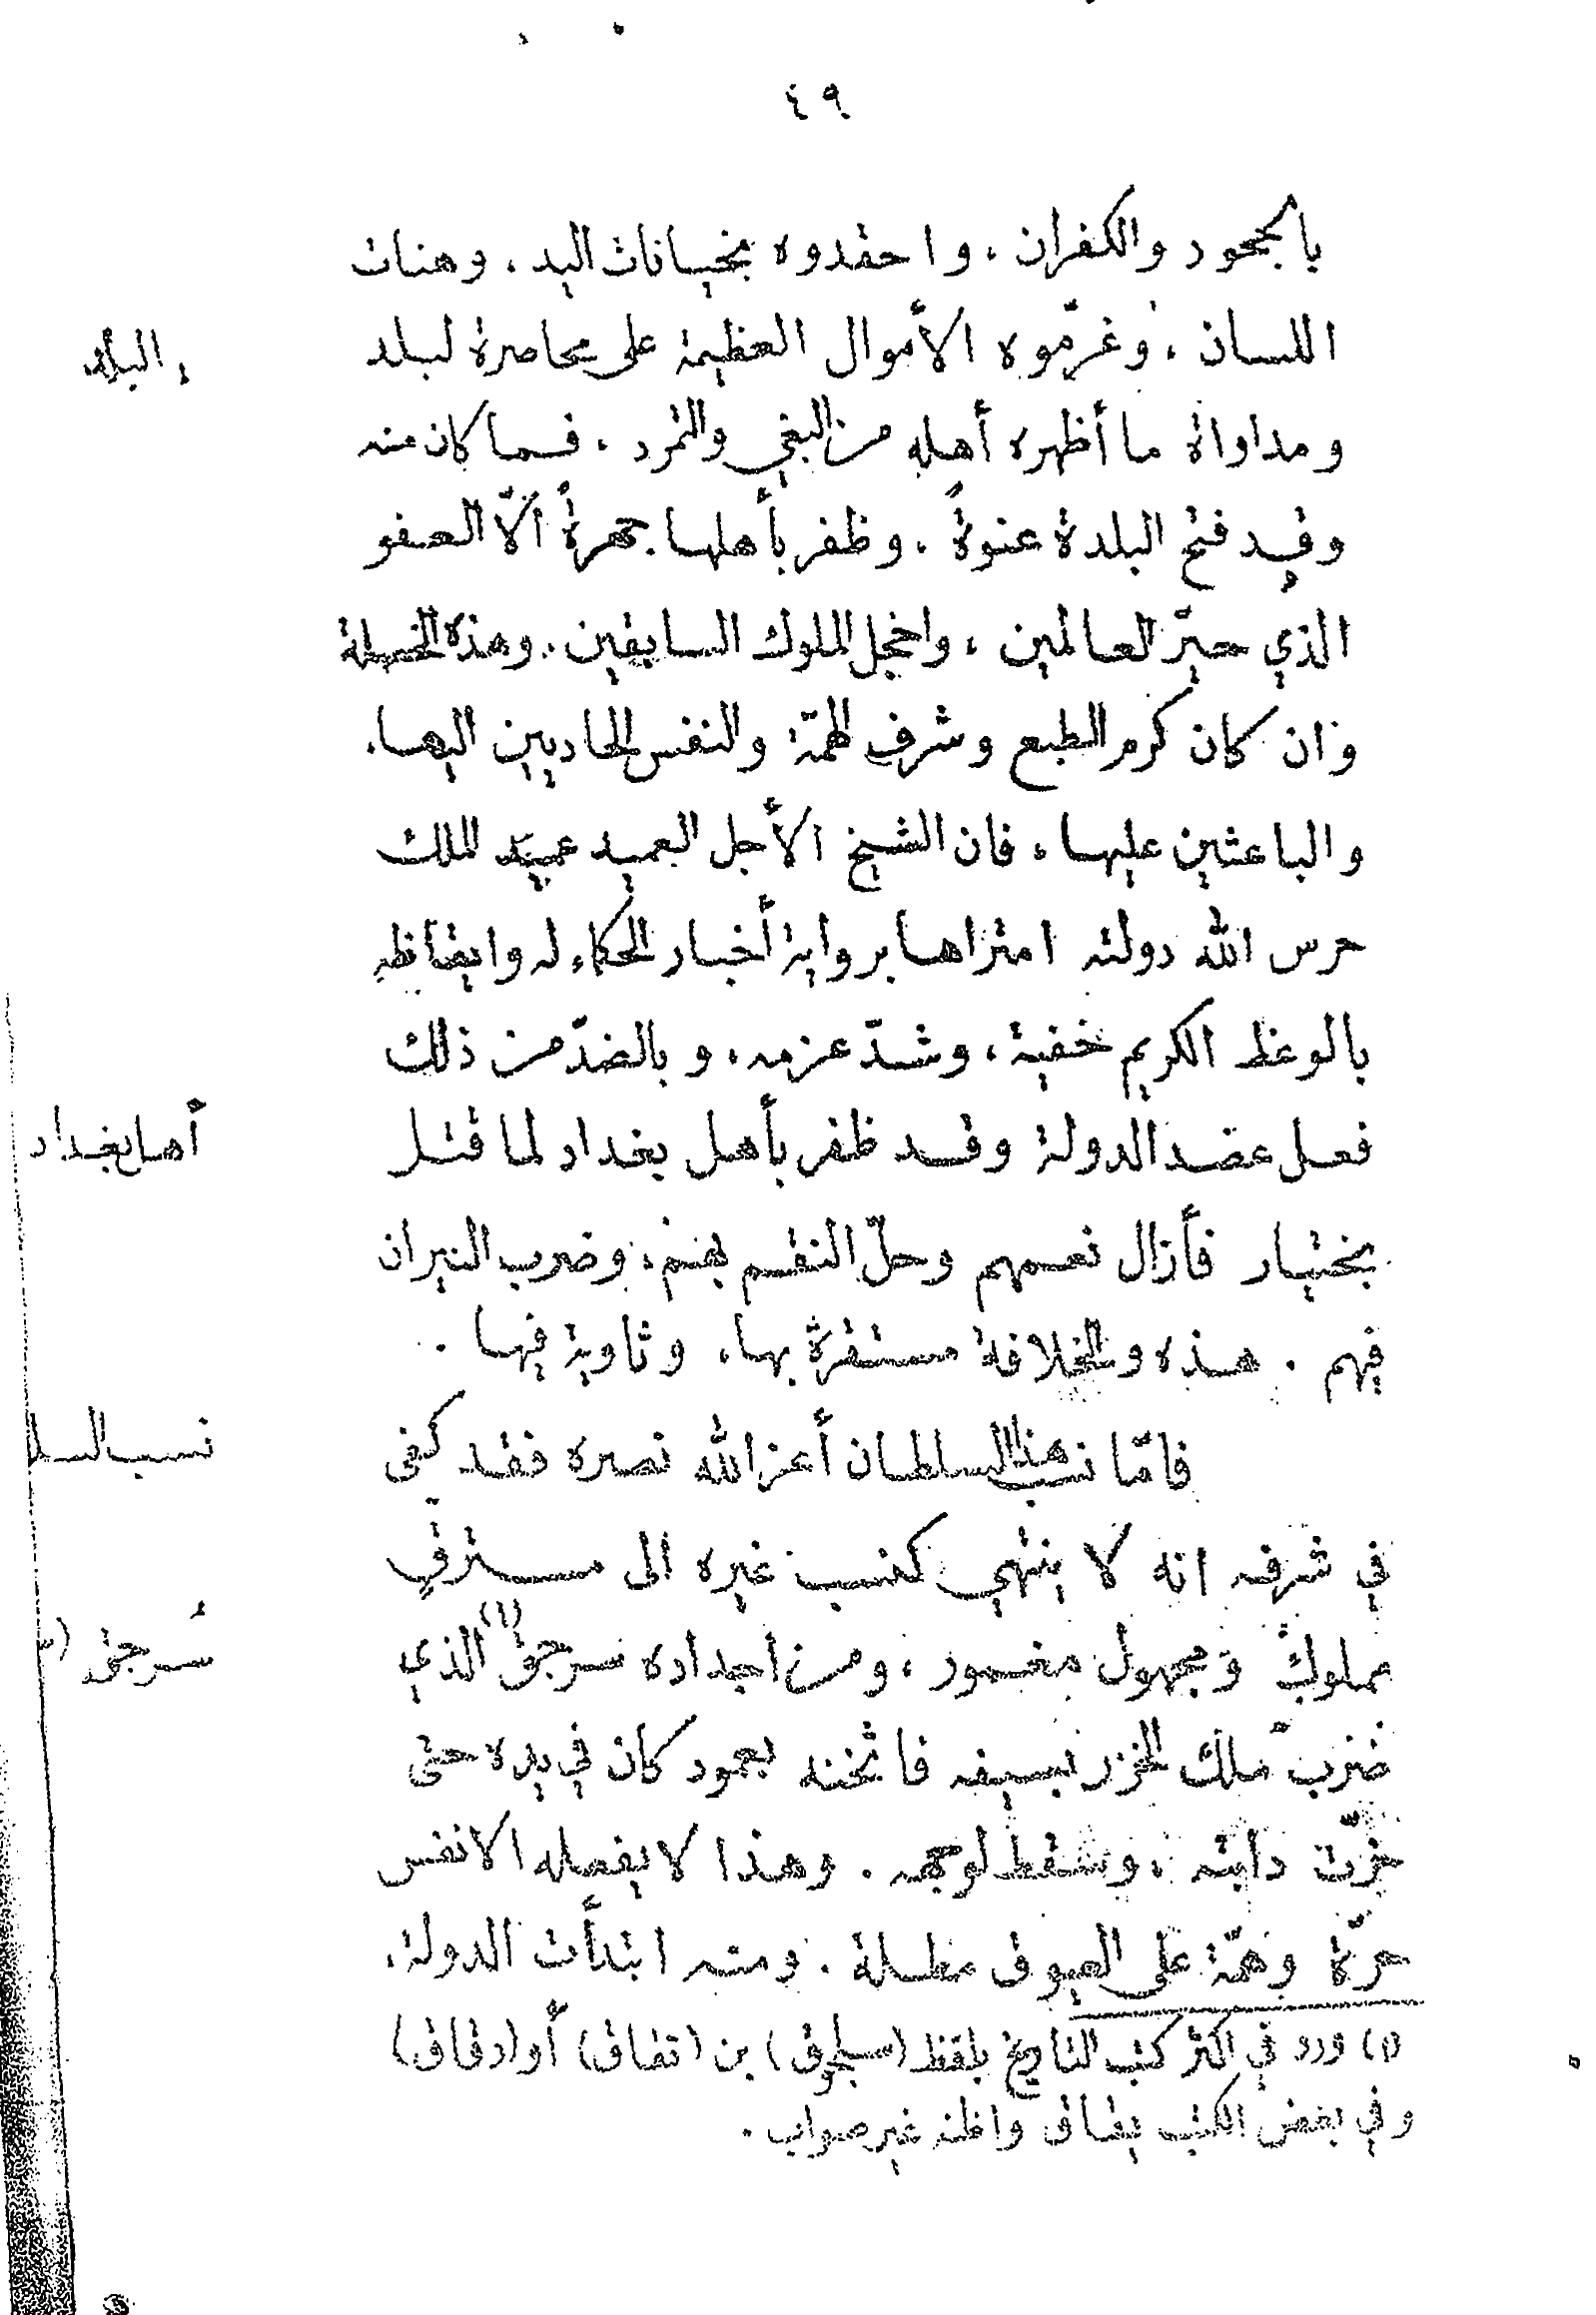 ٤٩
بالجحود والكفران ، واحقدوه بخيانات اليد ، وهنات
اللسان ، وغرّموه الأموال العظيمة على محاصرة لبلد
ومداواة ما أظهره أهله من البغي والتمرد ، فما كان منه
وقد فتح البلدة عنوةً ، وظفر بأهلها جهرةً ألاّ العفو
الذي حيّر العالمين ، واخجل الملوك السابقين . وهذه الخصلة
وان كان كرم الطبع وشرف الهمّة والنفس الحاديين اليها .
والباعثين عليها ، فان الشيخ الأجل العميد عميد الملك
حرس الله دولته امتراها برواية أخبار الحكماء له وايقاظه
بالوعظ الكريم خفية ، وشدّ عزمه ، وبالضدّ من ذلك
فعل عضد الدولة وقد ظفر بأهل بغداد لما قتل
بختيار فأزال نعمهم وحلّ النقم بهم ، وضرب النيران
فيهم . هذه والخلافة مستقرة بها ، وثاوية فيها .
فامّا نسب هذا السلطان أعز الله نصره فقد كفى
في شرفه انه لا ينتهي كنسب غيره الى مسترقٍ
مملوك ومجهول مغمور ، ومن اجداده سرجق (١) الذي
ضرب ملك الخزر بسيفه فاثخنه بعمود كان في يده حتى
خرّت دابته ، وسقط لوجهه . وهذا لا يفعله الا نفس
حرّة وهمّة على العيوق مطلة . ومنه ابتدأت الدولة .
(١) ورد في اكثر كتب التاريخ بلفظ (سلجوق) بن (تقاق) أو (دقاق)
وفي بعض الكتب يقاق واظنه غير صواب .
أهل بغداد
نسب السلـ
سُرجق